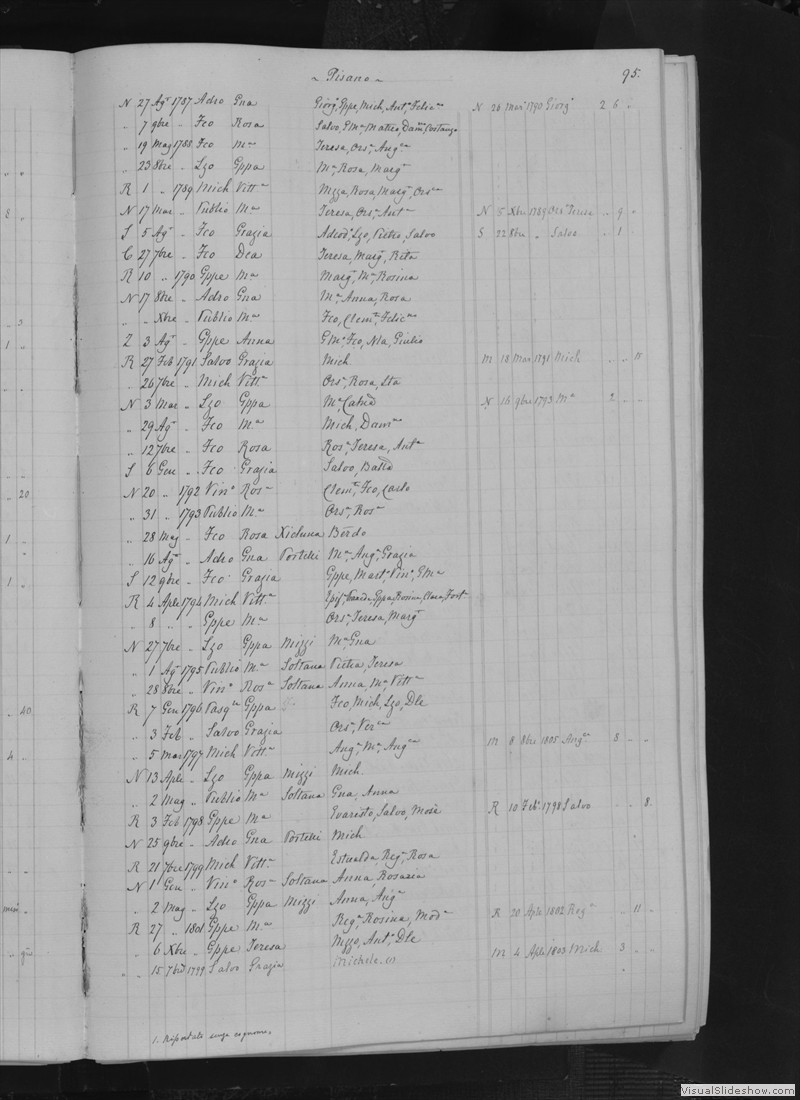 ~ Pisano ~ 95.
N 27 Agto 1787 Adro Gna Giorgo, Gppe, Mich, Anto, Felicna N 26 1790 Giorgo 2 6 "
" 7 9bre " Fco Rosa Salvo, GMa Matteo, Damo, Costanza
" 19 Mag 1788 Fco Ma Teresa, Orsa, Anga
" 23 8bre " Lzo Gppa Ma, Rosa, Marga
R 1 " 1789 Mich Vitta Nzza, Rosa, Marga, Orsa
N 17 Mar " Publio Ma Teresa, Orsa, Anta N 5 Xbre 1789 Orsa Teresa " 9 "
S 5 Agto " Fco Grazia Adeodo, Lzo, Pietro, Salvo S 22 8bre " Salvo " 1 "
C 27 7bre " Fco Dea Teresa, Marga, Rita
R 10 " 1790 Gppe Ma Marga, Ma, Rosina
N 17 8bre " Adro Gna Ma, Anna, Rosa
" " Xbre " Publio Ma Fco, Clemte, Felicno
Z 3 Agto " Gppe Anna GMa, Fco, Nla, Giulio
R 27 Feb 1791 Salvo Grazia Mich M 18 Mar 1791 Mich " " 11
" 26 7bre " Mich Vitta Orsa, Rosa, Sta
N 3 Mar " Lzo Gppa Ma, Catna N 16 9bre 1793 Ma 2 " "
" 29 Agto " Fco Ma Mich, Damno
" 12 7bre " Fco Rosa Rosa, Teresa, Anta
S 6 Gen " Fco Grazia Salvo, Battā
N 20 " 1792 Vino Rosa Clemte, Fco, Carlo
" 31 " 1793 Publio Ma Orsa, Rosa
" 28 Mag " Fco Rosa Xicluna Bērdo
" 16 Agto " Adro Gna Portelli Ma, Anga, Grazia
S 12 9bre " Fco Grazia Gppe, Marto, Vino, GMa
R 4 Aple 1794 Mich Vitta Gppa, Rosina, Clara, Forta
" 8 " " Gppe Ma Orsa, Teresa, Marga
N 27 7bre " Lzo Gppa Mizzi Ma, Gna
" 1 Agto 1795 Publio Ma Soltana Pietra, Teresa
" 28 8bre " Vino Rosa Soltana Anna, Ma, Vitta
R 7 Gen 1796 Pasqle Gppa Fco, Mich, Lzo, Dle
" 3 Feb " Salvo Grazia Orsa, Verca
" 5 Mar 1797 Mich Vitta Anga, Ma, Angca M 8 8bre 1805 Anga 8 " "
N 13 Aple " Lzo Gppa Mizzi Mich
" 2 Mag " Publio Ma Soltana Gna, Anna
R 3 Feb 1798 Gppe Ma Evaristo, Salvo, Mosè R 10 Febo 1798 Salvo " " 8.
N 25 9bre " Adro Gna Portelli Mich
R 21 7bre 1799 Mich Vitta Estualda, Rega, Rosa
N 1 Gen " Vino Rosa Soltana Anna, Rosaria
" 2 Mag " Lzo Gppa Mizzi Anna, Anga
R 27 " 1801 Gppe Ma Rega, Rosina, Moda R 20 Aple 1802 Rega " 11 "
" 6 Xbre " Gppe Teresa Nzzo, Anto, Dle M 4 Aple 1803 Mich 3 " "
" 15 7bre 1799 Salvo Grazia Michele (1)
1. Riportato senza cognome.
8
3
1
20
1
1
40
4
VisualSlideshow.com